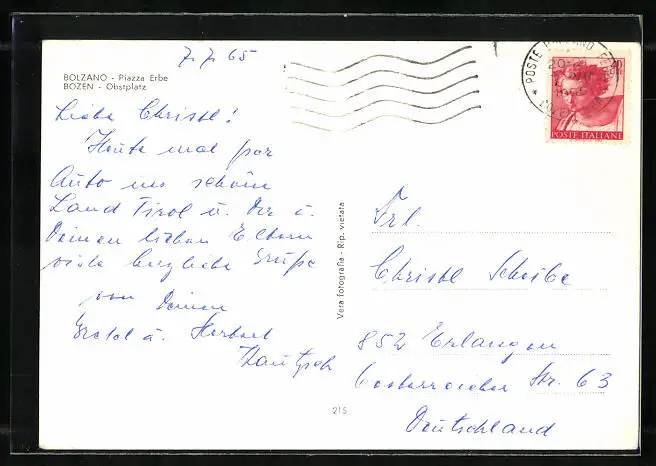 7.7.65
BOLZANO - Piazza Erbe
BOZEN - Obstplatz
Liebe Christl!
Heute mal per
Auto ins schöne
Land Tirol u. Dir u.
Deinen lieben Eltern
viele herzliche Grüße
von Deinen
Gretel u. Herbert
Vera fotografia - Rip. vietata
215
POSTE
20
POSTE ITALIANE
Frl.
Christl Scheibe
852 Erlangen
Str. 63
Deutschland